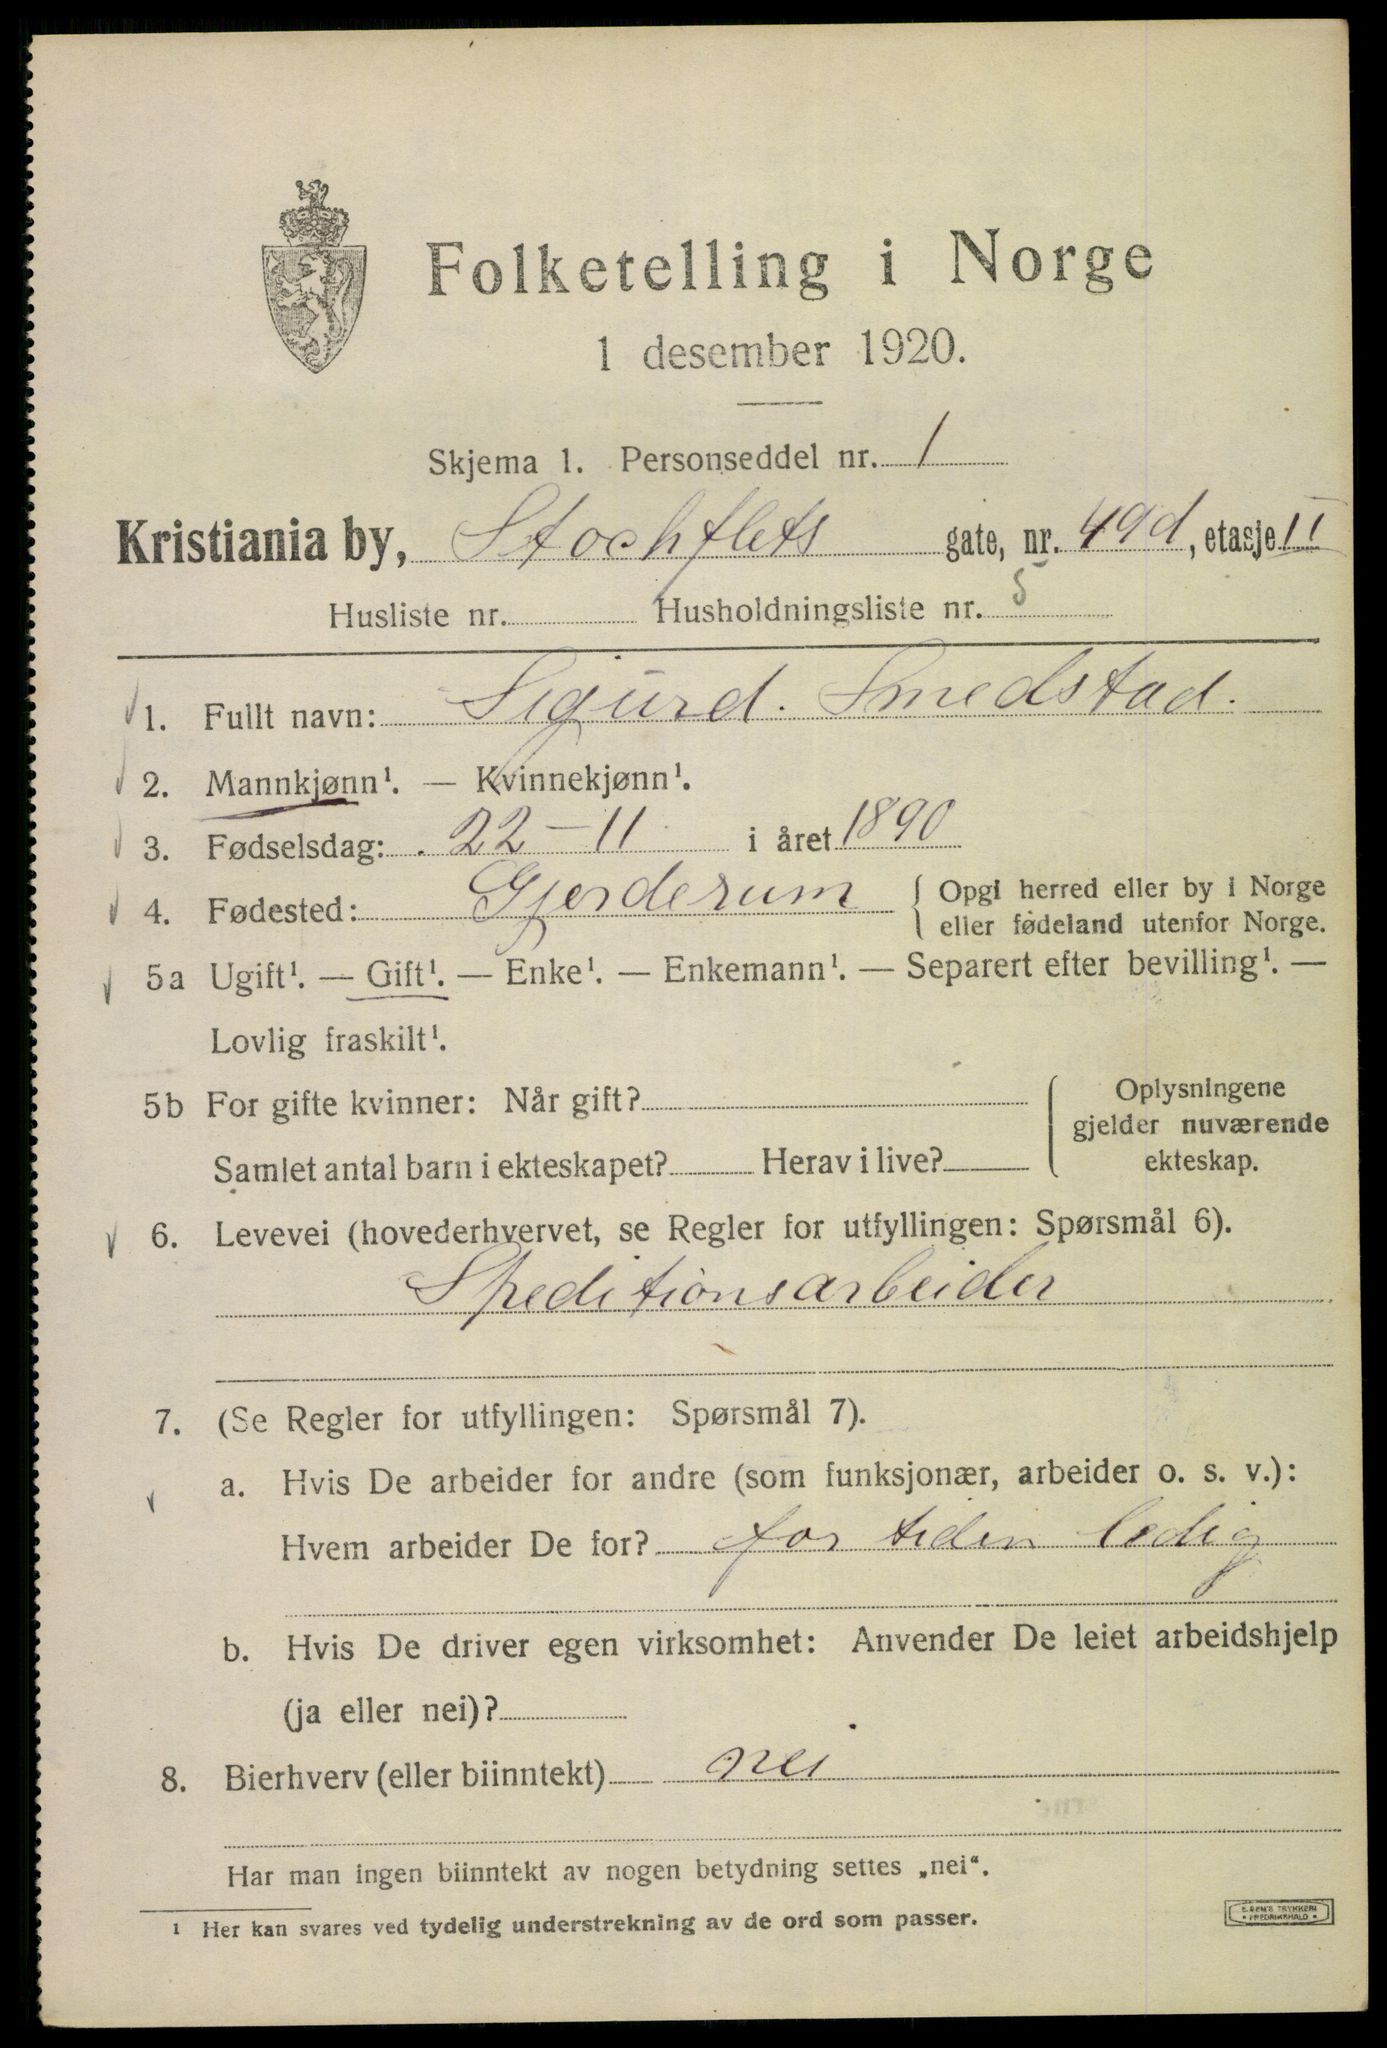 Folketelling i Norge
1 desember 1920.
Skjema 1. Personseddel nr. 1
Kristiania by, Stochflets gate, nr. 49d, etasje II
Husliste nr. Husholdningsliste nr. 5
1. Fullt navn: Sigurd. Smedstad.
2. Mannkjønn¹. — Kvinnekjønn¹.
3. Fødselsdag: 22-11 i året 1890
4. Fødested: Gjerderum { Opgi herred eller by i Norge
eller fødeland utenfor Norge.
5a Ugift¹. — Gift¹. — Enke¹. — Enkemann¹. — Separert efter bevilling¹. —
Lovlig fraskilt¹.
5b For gifte kvinner: Når gift?
Samlet antal barn i ekteskapet? Herav i live?
Oplysningene
gjelder nuværende
ekteskap.
6. Levevei (hovederhvervet, se Regler for utfyllingen: Spørsmål 6).
Speditionsarbeider
7. (Se Regler for utfyllingen: Spørsmål 7).
a. Hvis De arbeider for andre (som funksjonær, arbeider o. s. v.):
Hvem arbeider De for? for tiden ledig
b. Hvis De driver egen virksomhet: Anvender De leiet arbeidshjelp
(ja eller nei)?
8. Bierhverv (eller biinntekt) nei
Har man ingen biinntekt av nogen betydning settes „nei“.
¹ Her kan svares ved tydelig understrekning av de ord som passer.